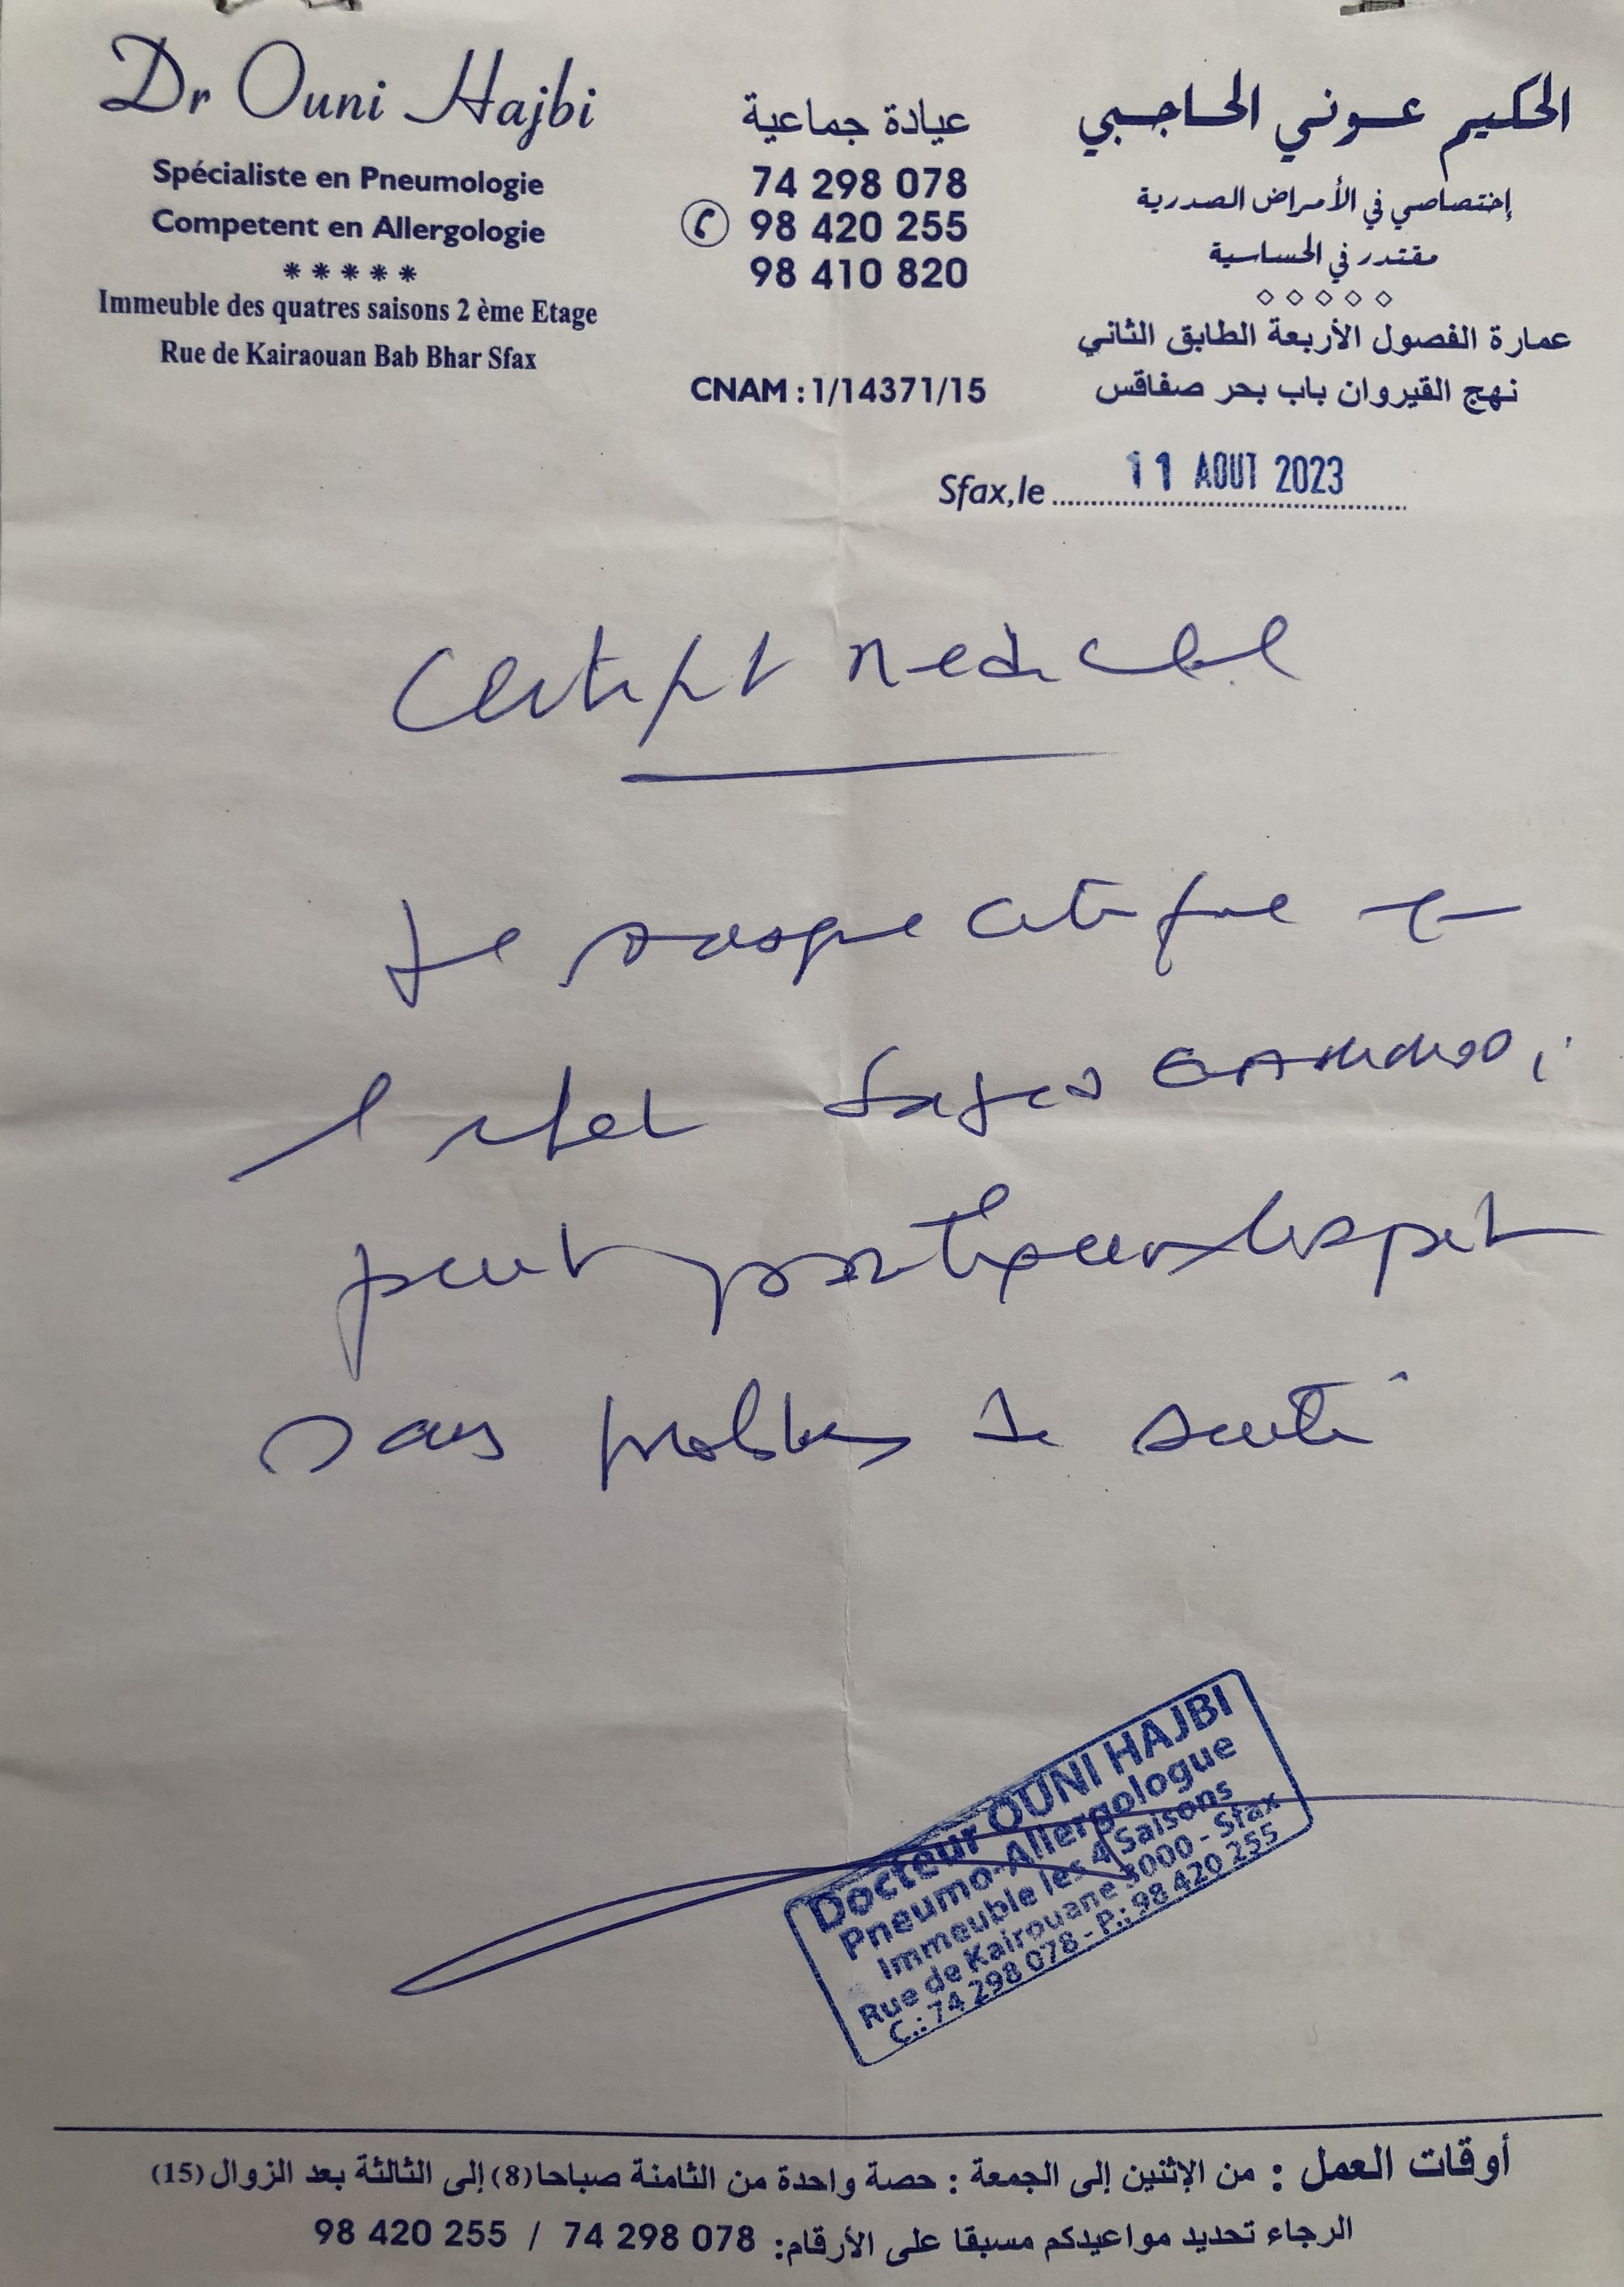 Dr Ouni Hajbi
Spécialiste en Pneumologie
Competent en Allergologie
*****
Immeuble des quatres saisons 2 ème Etage
Rue de Kairaouan Bab Bhar Sfax
عيادة جماعية
74 298 078
98 420 255
98 410 820
CNAM : 1/14371/15
الحكيم عوني الحاجبي
إختصاصي في الأمراض الصدرية
مقتدر في الحساسية
عمارة الفصول الأربعة الطابق الثاني
نهج القيروان باب بحر صفاقس
Sfax, le 11 AOUT 2023
Certificat medical
Je certifie que
l'
peut
sans problemes de santé
Docteur OUNI HAJBI
Pneumo-Allergologue
Immeuble les 4 Saisons
Rue de Kairouane 3000 - Sfax
C.: 74 298 078 - P.: 98 420 255
أوقات العمل : من الإثنين إلى الجمعة : حصة واحدة من الثامنة صباحا (8) إلى الثالثة بعد الزوال (15)
الرجاء تحديد مواعيدكم مسبقا على الأرقام: 74 298 078 / 98 420 255